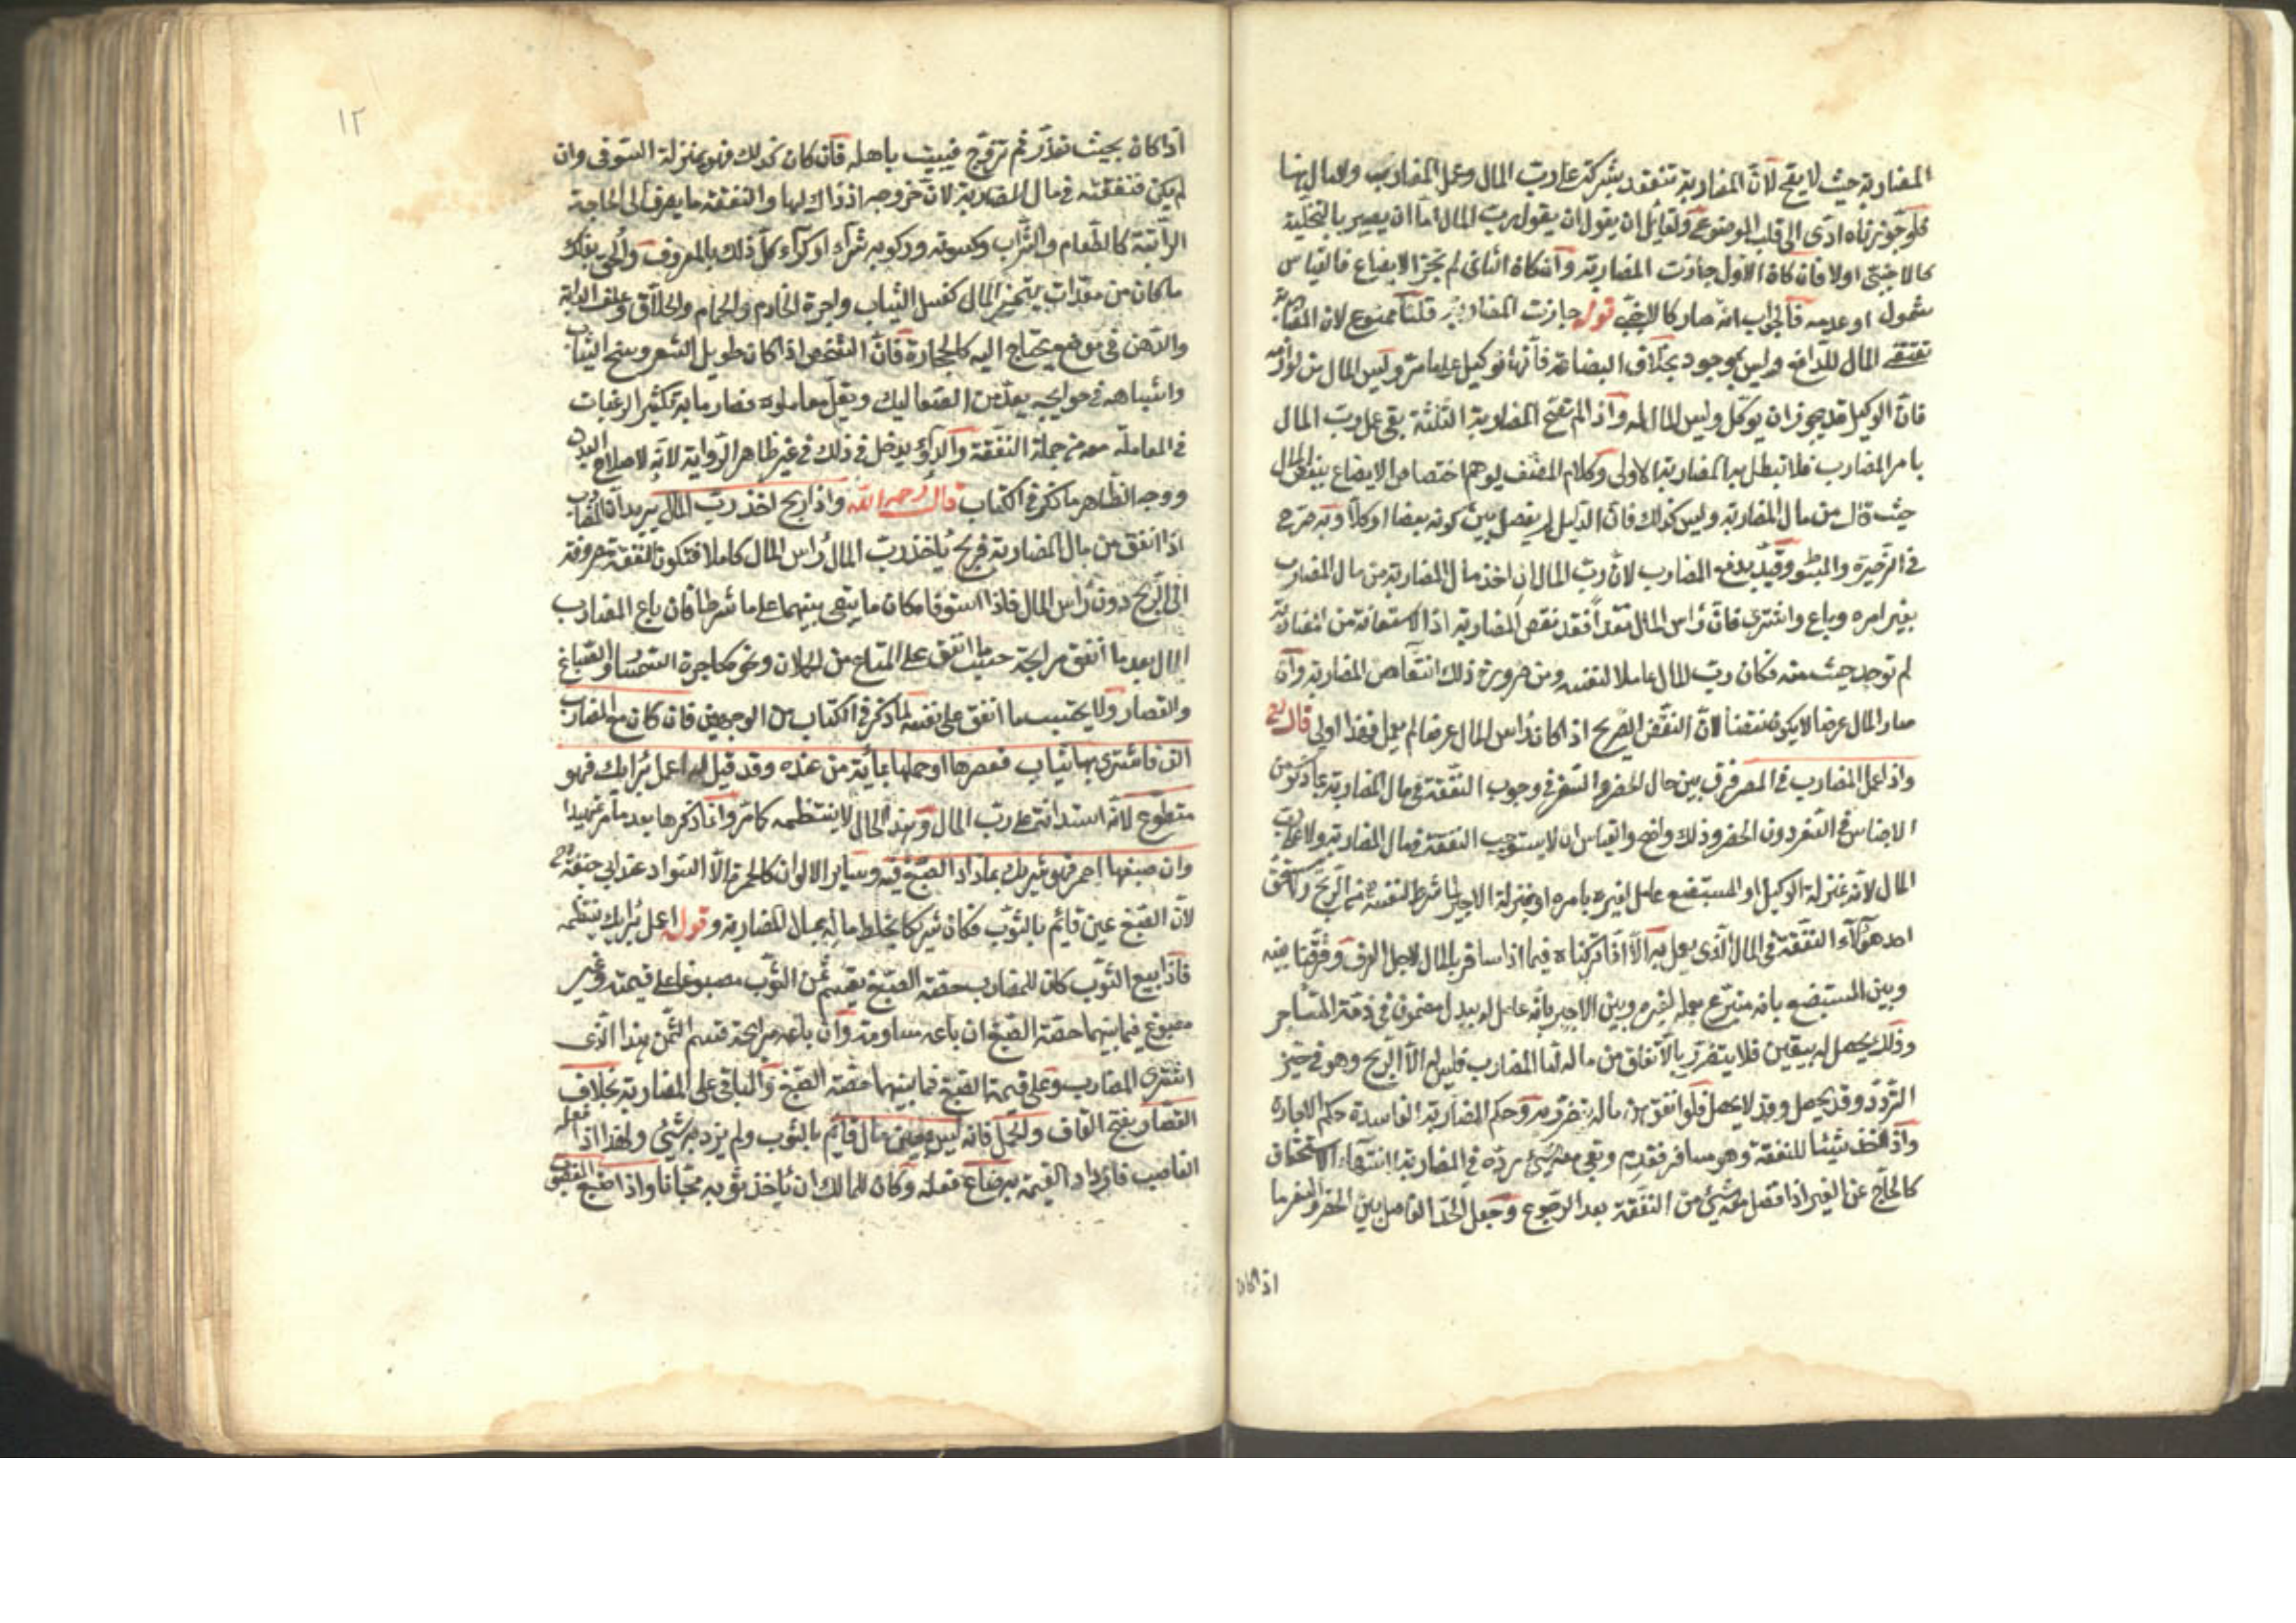 المضاربة حيث لا يصح لان المضاربة تنعقد بشركة على رب المال وعمل المضارب ولا مال هنا
فلو جوزناه ادى الى قلب الموضوع ولقائل ان يقول ان يقول رب المال اما ان يصير بالتخلية
كالاجنبى او لا فان كان الاول جازت المضاربة وان كان الثانى لم يجز الابضاع فالقياس
شمول او عدمه فالجواب انه صار كالاجنبى قوله جازت المضاربة قلنا ممنوع لان المضاربة
تقتضى المال للدافع وليس بموجود بخلاف البضاعة فانها توكيل على ما مر وليس المال من لوازمه
فان الوكيل قد يجوز ان يوكل وليس المال له واذا لم تصح المضاربة الثانية بقى عمل رب المال
بامر المضارب فلا تبطل به المضاربة الاولى وكلام المصنف يوهم اختصاص الابضاع ببعض المال
حيث قال من مال المضاربة وليس كذلك فان الدليل لم يفصل بين كونه بعضا او كلا وبه صرح
فى الذخيرة والمبسوط وقيد بدفع المضارب لان رب المال ان اخذ مال المضاربة من مال المضارب
بغير امره وباع واشترى فان كان راس المال نقدا فقد نقض المضاربة اذ الاستعانة من المضاربة
لم توجد حيث منه فكان رب المال عاملا لنفسه ومن ضرورة ذلك انتقاض المضاربة وان
صار المال عرضا لا يكون نقضا لان النقض الصريح اذا كان راس المال عرضا لم يعمل فهذا اولى قال رح
واذا عمل المضارب فى المصر فرق بين حال الحضر والسفر فى وجوب النفقة فى مال المضاربة بما ذكره من
الاحتباس فى السفر دون الحضر وذلك واضح والقياس ان لا يستوجب النفقة فى مال المضاربة ولا على رب
المال لانه بمنزلة الوكيل او المستبضع عامل لغيره بامره او بمنزلة الاجير لما شرط لنفسه من الربح ولا يستحق
احد هؤلاء النفقة فى المال الذى يعمل به الا انا تركناه فيما اذا سافر بالمال لاجل العرف وفرقنا بينه
وبين المستبضع بانه متبرع بعمله لغيره وبين الاجير بانه عامل له ببدل مضمون فى ذمة المستاجر
وذلك يحصل له بيقين فلا يتضرر بالانفاق من ماله اما المضارب فليس له الا الربح وهو فى حيز
التردد وقد يحصل وقد لا يحصل فلو انفق من ماله تضرر به وحكم المضاربة الفاسدة حكم الاجارة
واذا اخذ شيئا للنفقة وهو مسافر فقدم وبقى معه شئ رده فى المضاربة لانتهاء الاستحقاق
كالحاج عن الغير اذا فضل معه شئ من النفقة بعد الرجوع وجعل الحد الفاصل بين الحضر والسفر ما
اذا كان
١٢
اذا كان بحيث تعذر ثم تروح فيبيت باهله فان كان كذلك فهو بمنزلة السوقى وان
لم يكن فنفقته فى مال المضاربة لان خروجه اذ ذاك لها والنفقة ما يصرف الى الحاجة
الراتبة كالطعام والشراب وكسوته وركوبه شراء او كراء كل ذلك بالمعروف والحق بذلك
ما كان من معدات بتحيز المال كغسل الثياب واجرة الخادم والحمام والحلاق وعلف الدابة
والدهن فى موضع يحتاج اليه كالحجاز فان الشخص اذا كان طويل الشعر وسخ الثياب
واشباهه فى حوايجه يعد من الصعاليك ويقل معاملوه فصار ما به تكثير الرغبات
فى المعاملة معه من جملة النفقة والدواء يدخل فى ذلك فى غير ظاهر الرواية لانه لاصلاح البدن
ووجه الظاهر ما ذكر فى الكتاب قال رحمه الله واذا ربح اخذ رب المال يريد ان المضارب
اذا انفق من مال المضاربة فربح ياخذ رب المال راس المال كاملا فتكون النفقة مصروفة
الى الربح دون راس المال فاذا استوفاه كان ما يبقى بينهما على ما شرطا فان باع المضارب
المال بعد ما انفق مرابحة حسب ما انفق على المتاع من الحملان ونحوه كاجرة السمسار والصباغ
والقصار ولا يحتسب ما انفق على نفسه لما ذكر فى الكتاب من الوجهين فان كان مع المضارب
الف فاشترى بها ثياب فقصرها او حملها بماية من عنده وقد قيل له اعمل برايك فهو
متطوع لانه استدانة على رب المال وهذا الحال لا ينتظمه كما مر وانما ذكرها بعد ما مر تمهيدا
وان صبغها احمر فهو شريك بما زاد الصبغ فيه وساير الالوان كالحمرة الا السواد عند ابى حنيفة رح
لان الصبغ عين قائم بالثوب فكان شريكا بخلط ماله بمال المضاربة وقوله اعمل برايك ينتظمه
فاذا بيع الثوب كان للمضارب حصة الصبغ يقسم ثمن الثوب مصبوغا على قيمته وغير
مصبوغ فما بينهما حصة الصبغ ان باعه مساومة وان باعه مرابحة قسم الثمن هذا الذى
اشترى المضارب وعلى قيمة الصبغ فما بينهما حصة الصبغ والباقى على المضاربة بخلاف
القصار بفتح القاف والحمل فانه ليس بعين مال قائم بالثوب ولم يزد به شئ ولهذا اذا فعله
الغاصب فازداد القيمة به ضاع فعله وكان للمالك ان ياخذ ثوبه مجانا واذا صبغ المغصوب